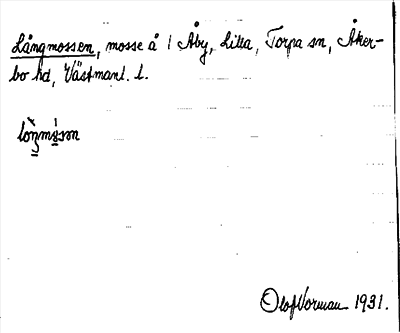 Långmossen, mosse å 1 Åby, Lilla, Torpa sn, Åker-
bo hd, Västmanl. l.
Olof Vorman 1931.